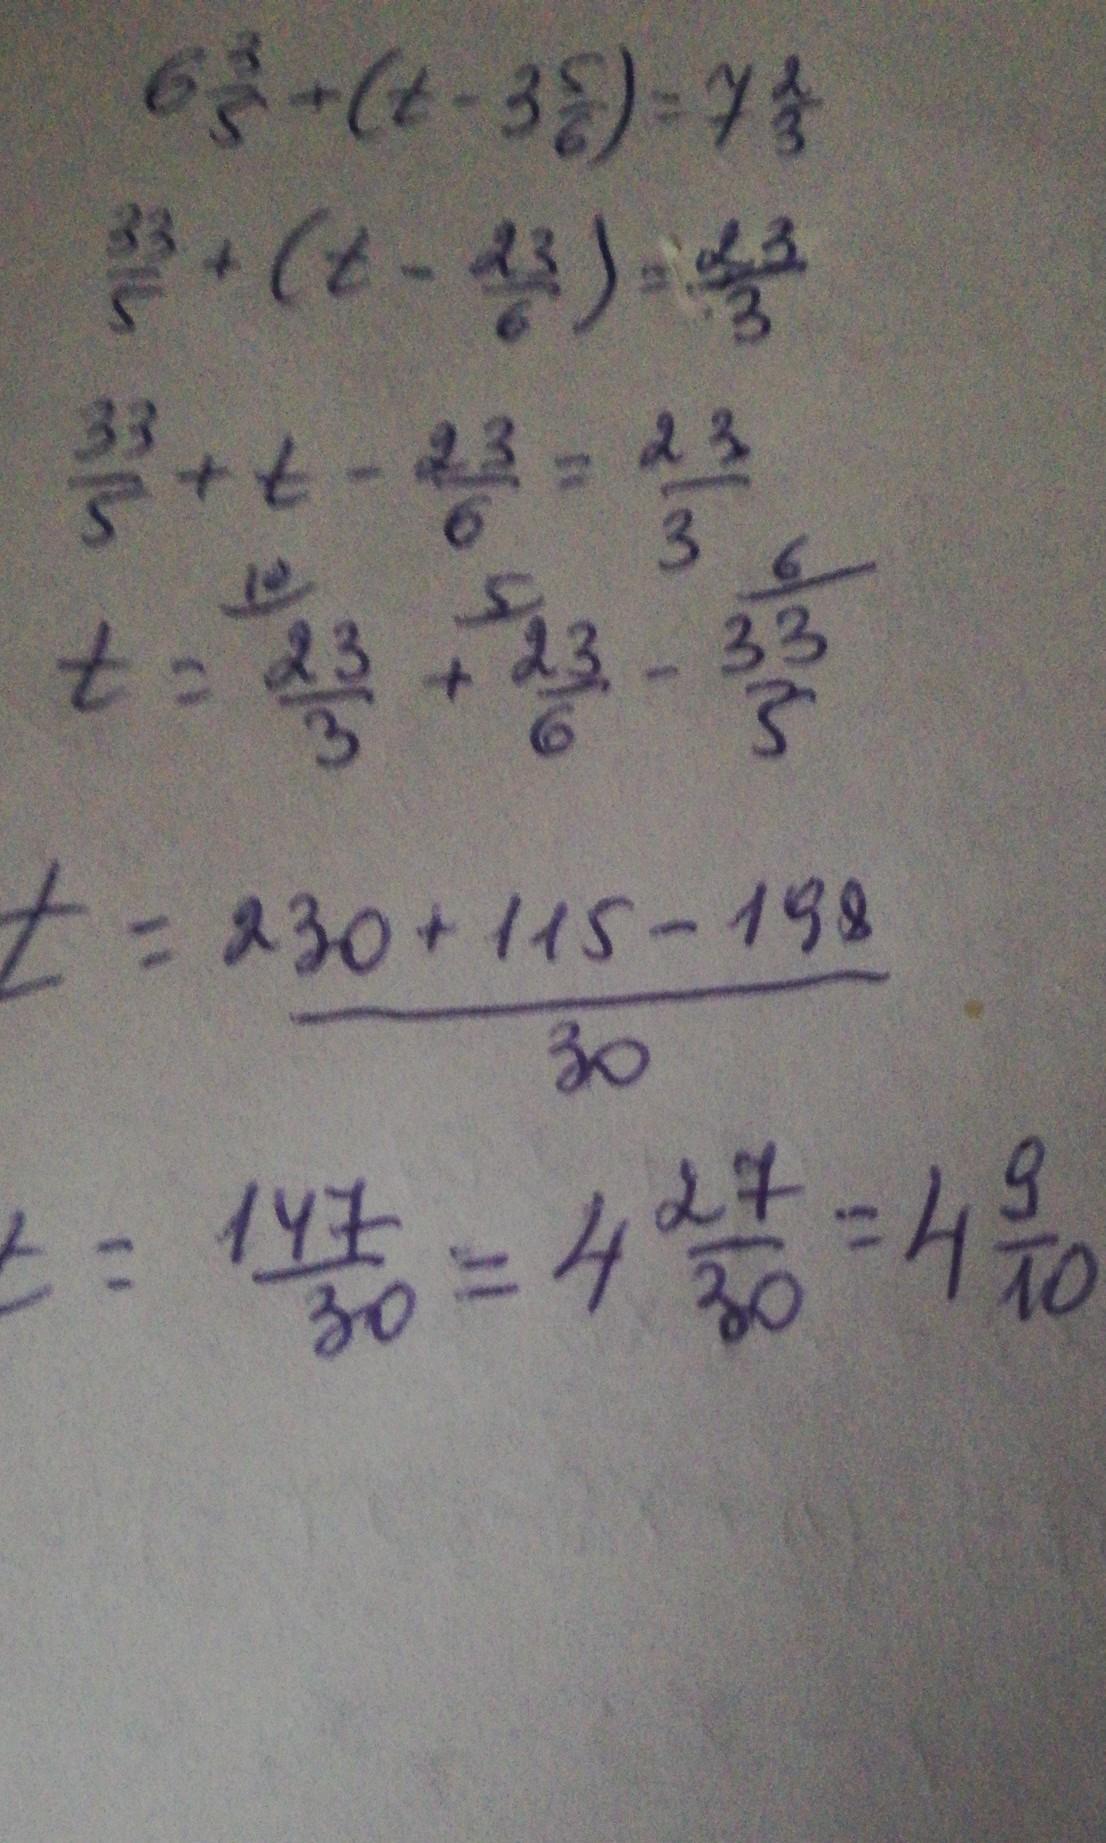 6 3/5 + (t - 3 5/6) = 7 2/3
33/5 + (t - 23/6) = 23/3
33/5 + t - 23/6 = 23/3
10 5 6
t = 23/3 + 23/6 - 33/5
t = 230 + 115 - 198 / 30
t = 147/30 = 4 27/30 = 4 9/10